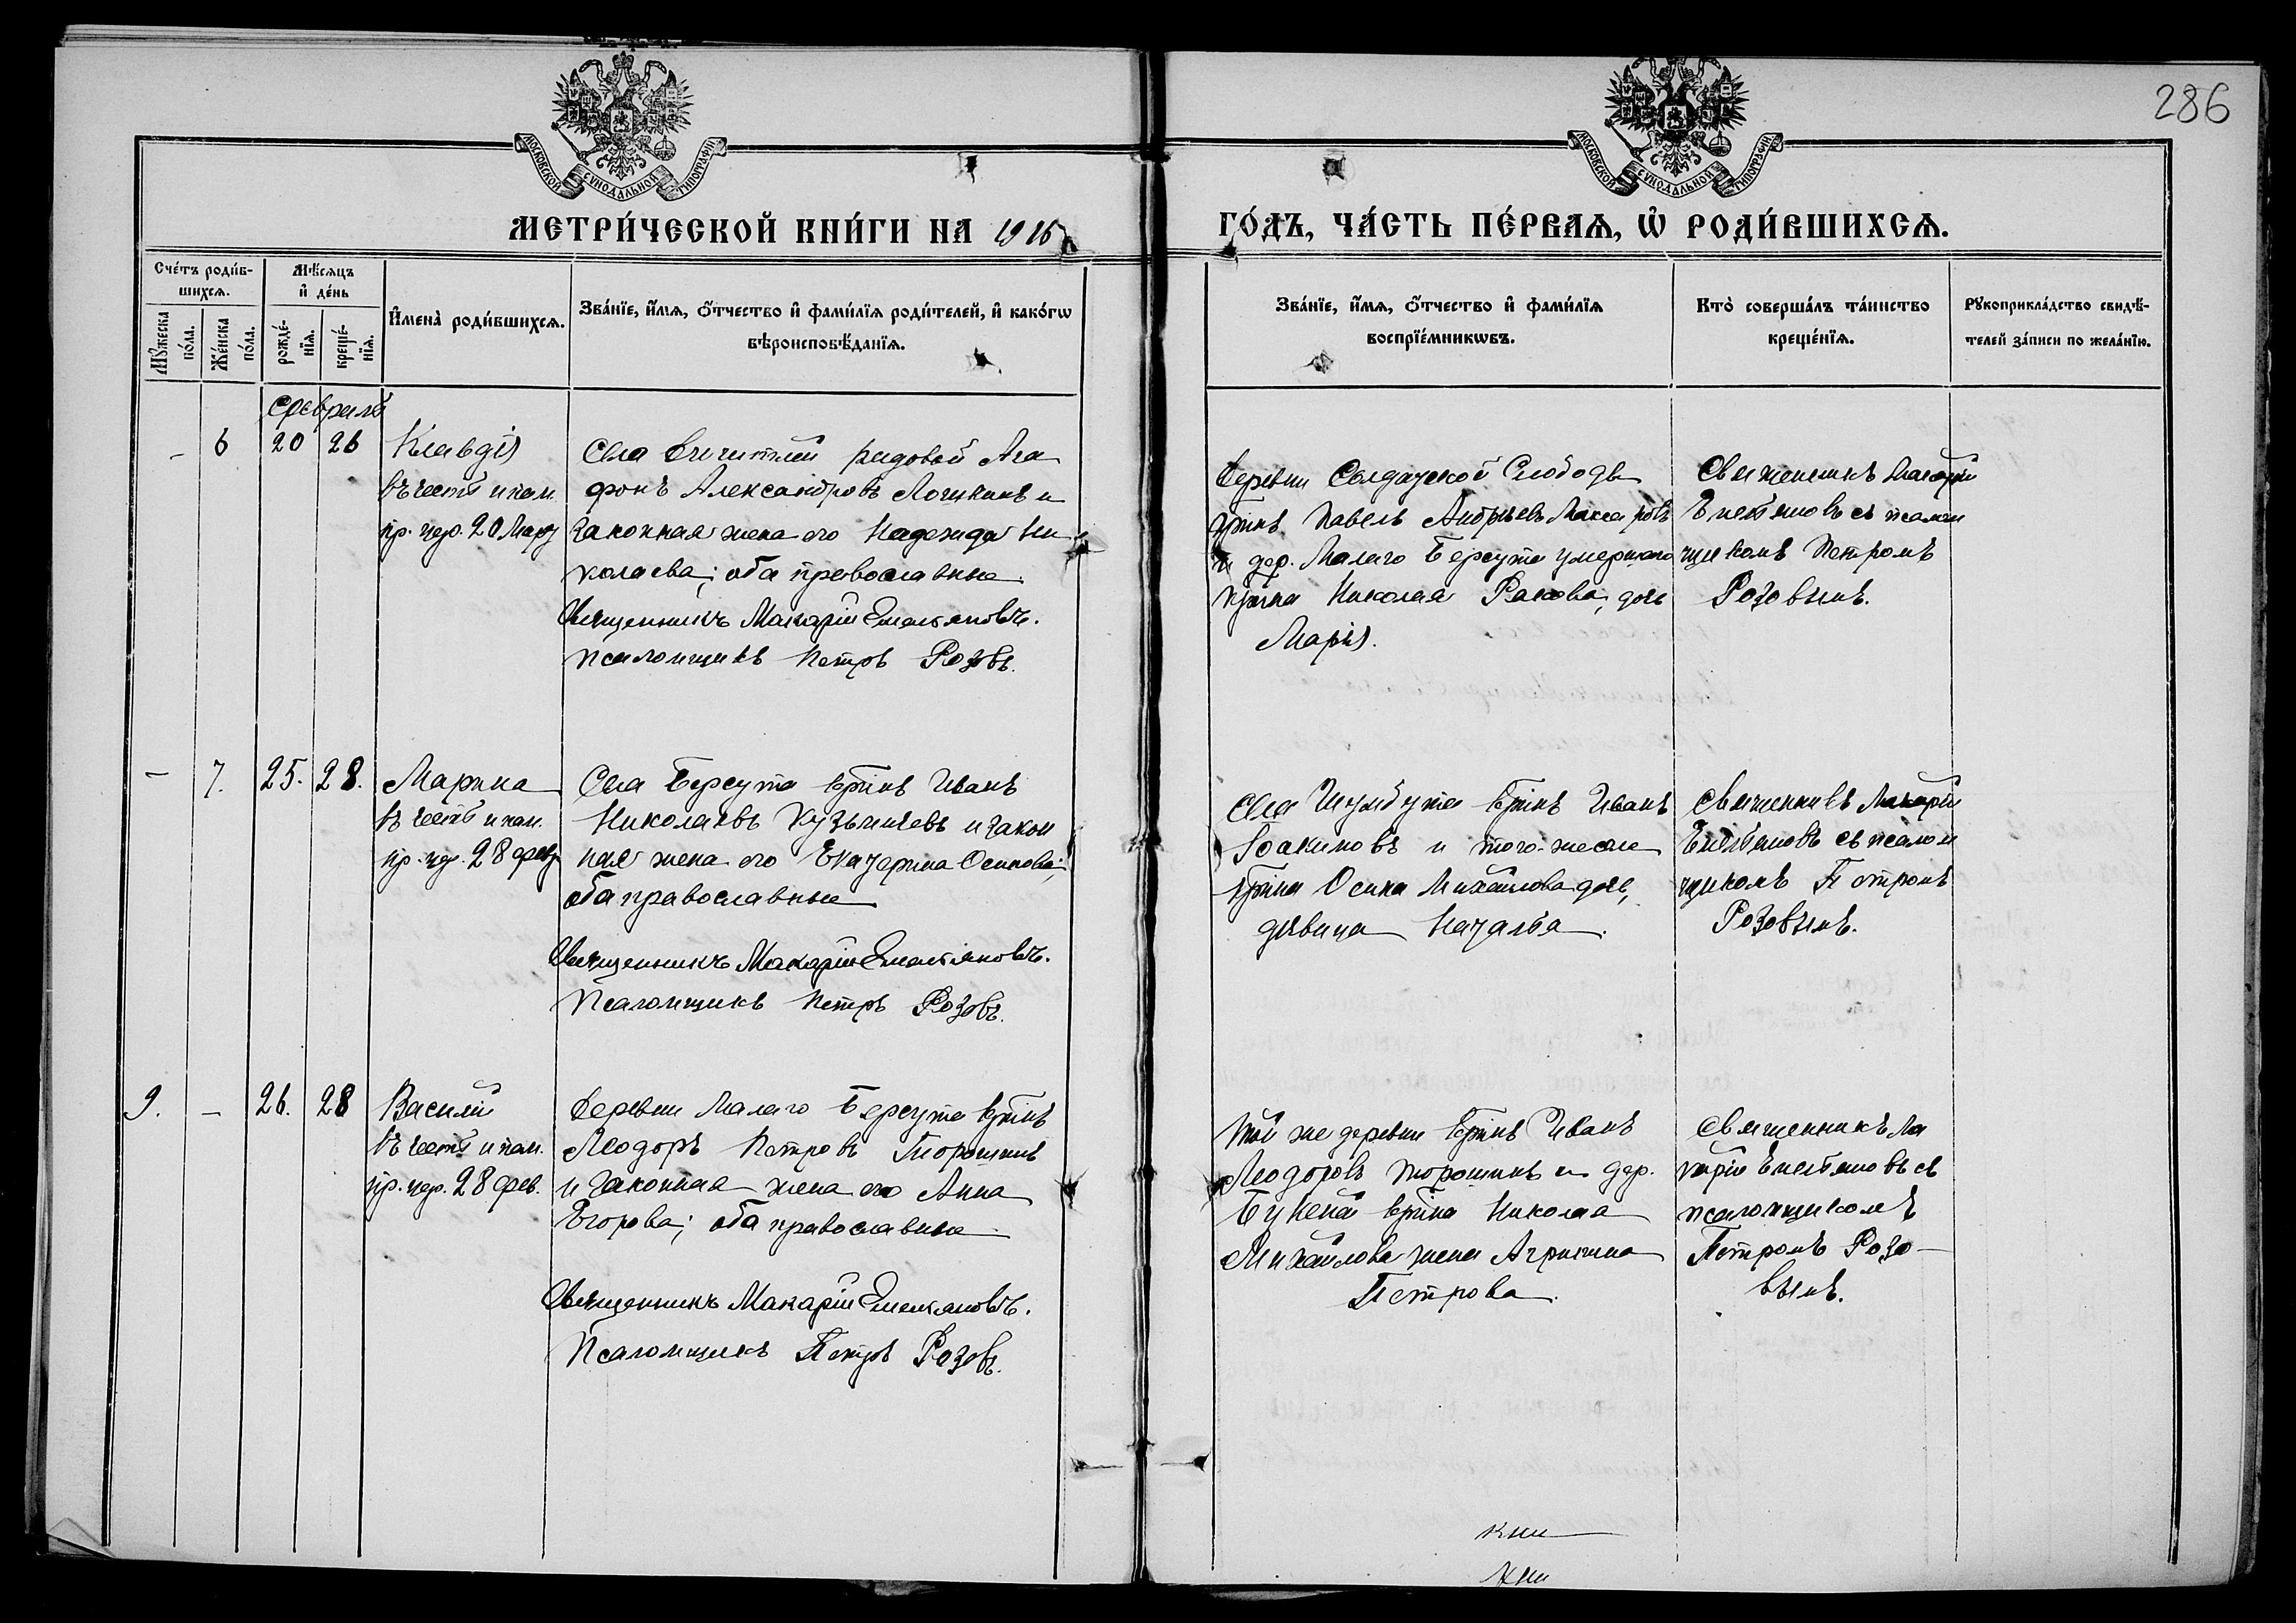 286
МОСКОВСКОЙ СѴНОДАЛЬНОЙ ТИПОГРАФІИ
МОСКОВСКОЙ СѴНОДАЛЬНОЙ ТИПОГРАФІИ
МЕТРИ́ЧЕСКОЙ КНИ́ГИ НА 1916
ГО́ДЪ, ЧА́СТЬ ПЕ́РВАѦ, Ѡ҆ РОДИ́ВШИХСѦ.
Сче́тъ роди́в-
шихсѧ.
Мꙋ́жеска
по́ла.
Же́нска
по́ла.
Мѣ́сѧцъ
и҆ де́нь
рожде́-
нїѧ.
креще́-
нїѧ.
И҆мена̀ роди́вшихсѧ.
Зва́нїе, и҆́мѧ, ѻ҆́тчество и҆ фами́лїѧ роди́телей, и҆ како́гѡ
вѣроисповѣ́данїѧ.
Зва́нїе, и҆́мѧ, ѻ҆́тчество и҆ фами́лїѧ
воспрїе́мникѡвъ.
Кто̀ соверша́лъ та́инство
креще́нїѧ.
Рꙋкоприкла́дство свидѣ́-
телей за́писи по жела́нїю.
Февраля
- 6 20 26
Клавдія
въ честь и пам.
пр. цер. 20 Мар
Села рядовой Ага
фонъ Александровъ и
законная жена его Надежда Ни
колаева; оба православные
Священникъ Макарій Емельяновъ.
Псаломщикъ Петръ Розовъ.
Деревни Солдатской Слободы
крт͠нъ Павелъ Андреевъ Макаровъ
и дер. Малаго Берсута умершаго
кртн͠а Николая Ракова, дочь
Марія.
Священникъ Макарій
Емельяновъ съ псалом
щикомъ Петромъ
Розовымъ.
- 7. 25. 28.
Марина
въ честь и пам.
пр. цер. 28 фев
Села Берсута кртн͠ъ Иванъ
Николаевъ Кузьмичевъ и закон
ная жена его Екатерина Осипова;
оба православные
Священникъ Макарій Емельяновъ.
Псаломщикъ Петръ Розовъ.
Села Шумбута кртн͠ъ Иванъ
Іоакимовъ и того-же села
кртн͠а Осипа Михайлова дочь,
дѣвица Наталія.
Священникъ Макарій
Емельяновъ съ псалом
щикомъ Петромъ
Розовымъ.
9. - 26. 28
Василій
въ честь и пам.
пр. цер. 28 фев.
Деревни Малаго Берсута кртн͠ъ
Ѳеодоръ Петровъ Торошинъ
и законная жена его Анна
Егорова; оба православные
Священникъ Макарій Емельяновъ.
Псаломщикъ Петръ Розовъ.
Той же деревни кртн͠ъ Иванъ
Ѳеодоровъ Торошинъ и дер.
кртн͠а Николая
Михайлова жена Агрипина
Петрова.
Священникъ Ма
карій Емельяновъ съ
псаломщикомъ
Петромъ Розо-
вымъ.
кни
кни